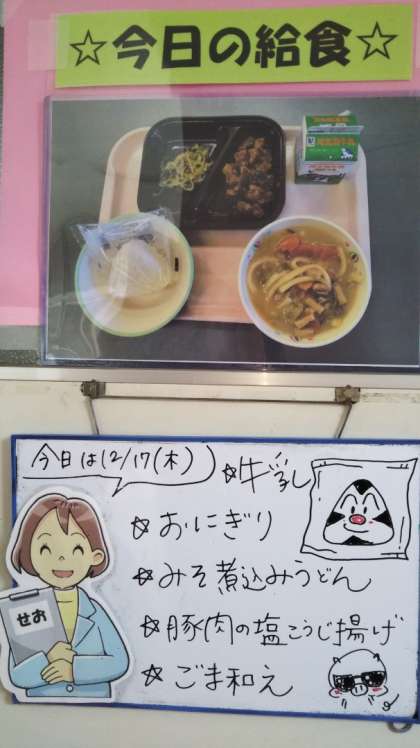 ☆今日の給食☆
今日は12/17(木)
☆牛乳
☆おにぎり
☆みそ煮込みうどん
☆豚肉の塩こうじ揚げ
☆ごま和え
せお